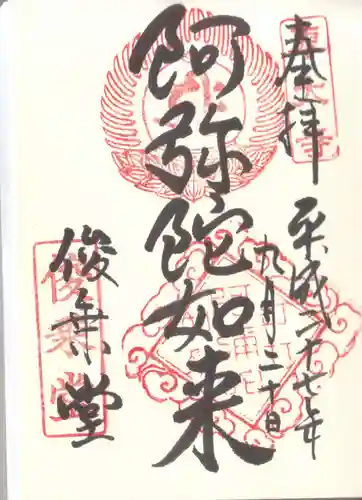 奉拝
平成二十七年
九月二十日
阿弥陀如来
俊乗堂
俊乗堂